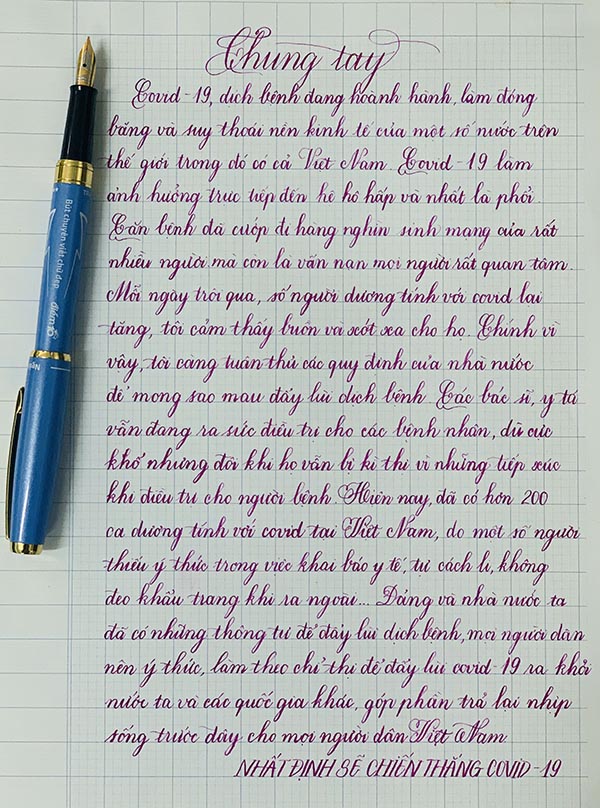 Chung tay
Covid-19, dịch bệnh đang hoành hành, làm đóng
băng và suy thoái nền kinh tế của một số nước trên
thế giới trong đó có cả Việt Nam. Covid-19 làm
ảnh hưởng trực tiếp đến hệ hô hấp và nhất là phổi.
Căn bệnh đã cướp đi hàng nghìn sinh mạng của rất
nhiều người mà còn là vấn nạn mọi người rất quan tâm.
Mỗi ngày trôi qua, số người dương tính với covid lại
tăng, tôi cảm thấy buồn và xót xa cho họ. Chính vì
vậy, tôi càng tuân thủ các quy định của nhà nước
để mong sao mau đẩy lùi dịch bệnh. Các bác sĩ, y tá
vẫn đang ra sức điều trị cho các bệnh nhân, dù cực
khổ nhưng đôi khi họ vẫn bị kì thị vì những tiếp xúc
khi điều trị cho người bệnh. Hiện nay, đã có hơn 200
ca dương tính với covid tại Việt Nam, do một số người
thiếu ý thức trong việc khai báo y tế, tự cách li, không
đeo khẩu trang khi ra ngoài... Đảng và nhà nước ta
đã có những thông tư để đẩy lùi dịch bệnh, mọi người dân
nên ý thức, làm theo chỉ thị để đẩy lùi covid-19 ra khỏi
nước ta và các quốc gia khác, góp phần trả lại nhịp
sống trước đây cho mọi người dân Việt Nam.
NHẤT ĐỊNH SẼ CHIẾN THẮNG COVID-19
Bút chuyên viết chữ đẹp